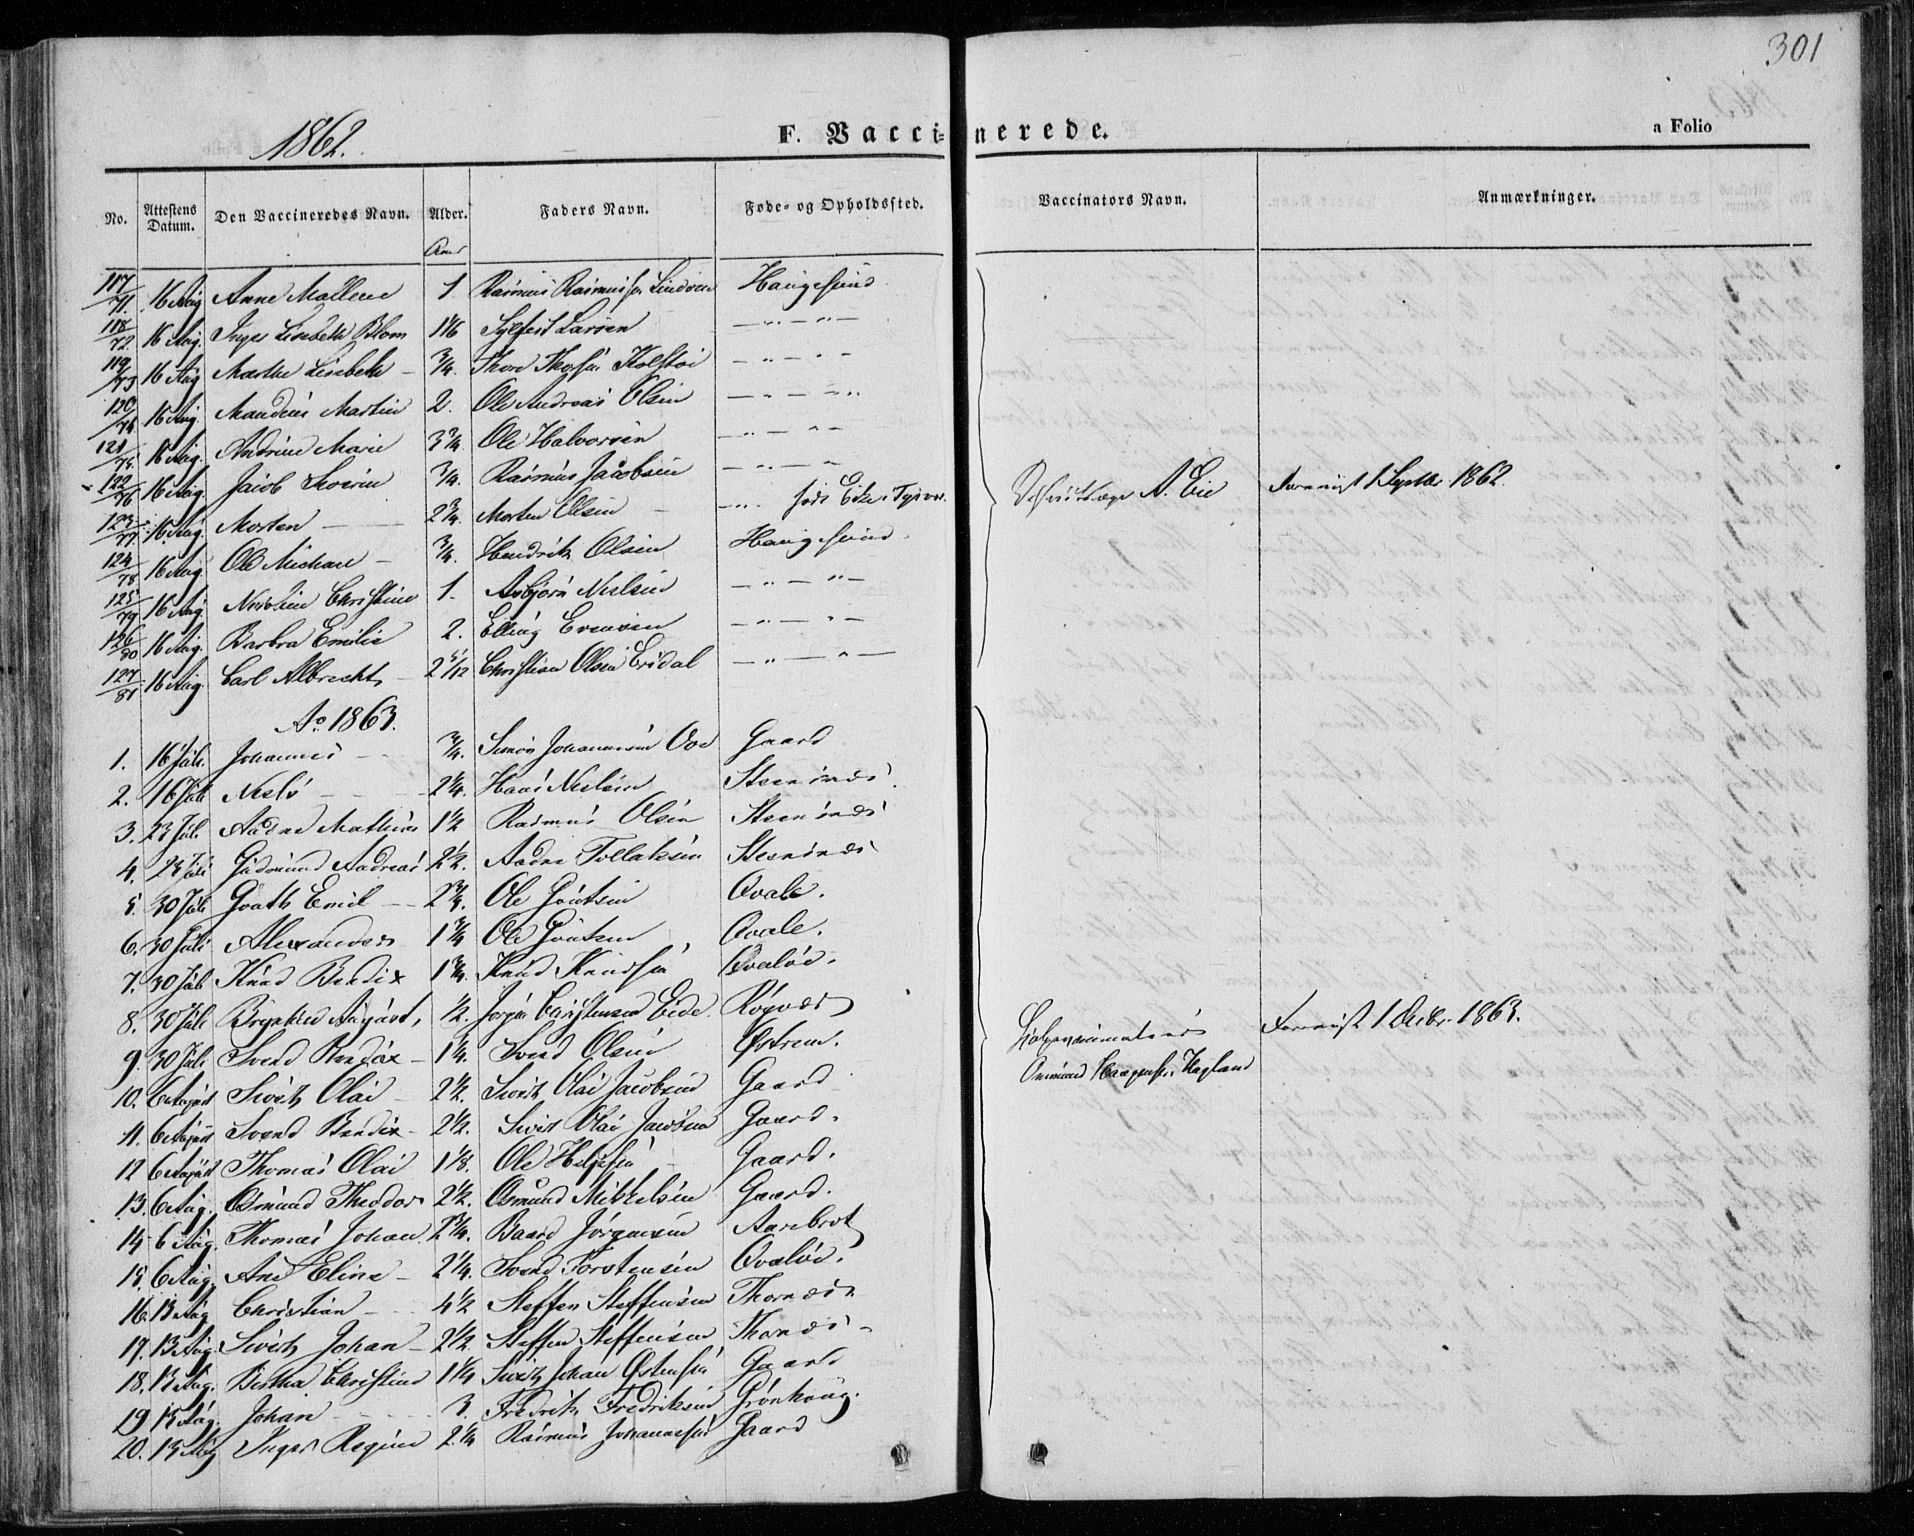 301
1862.
F. Vaccinerede.
a Folio
No. Attestens Datum. Den Vaccineredes Navn. Alder. Faders Navn. Føde- og Opholdssted. Vaccinators Navn. Anmærkninger.
Aar
117/71. 16 Aug Anne Mallene 1 Rasmus Rasmussen Haugesund
118/72. 16 Aug. Inger Lisebeth Blom 1 1/6 Sylfest Larsen — " — " —
119/73 16 Aug Marthe Lisebeth — 3/4. Thore Thorsen Kolstøe — " — " —
120/74 16 Aug. Maudius Martin 2. Ole Andreas Olsen — " — " —
121/75. 16 Aug. Andrine Marie 3 3/4. Ole Halvorsen — " — " —
122/76 16 Aug. Jacob Severin 3/4. Rasmus Jacobsen — " — " —
123/77. 16 Aug. Morten — — 2 3/4. Morten Olsen — — " . født Eike i Tysvær.
124/78 16 Aug. Ole Michael — 3/4. Hendrik Olsen Haugesund.
125/79 16 Aug Christine 1. Asbjørn Nielsen — " — " —
126/80 16 Aug. Barbra Emilie 2. Elling Evensen — " — " —
127/81 16 Aug. Carl Albrecht — 2 5/12 Christian Olsen — " — " —
A. Eie 1 Septbr 1862.
Ao. 1863.
1. 16 Juli. Johannes — 3/4. Simon Johannesen Gaard
2. 16 Juli Niels — 2 1/4. Hans Nielsen Steensnæs
3. 23 Juli Aadne Mathias 1 1/2 Rasmus Olsen Steensnæs
4. 23 Juli Gudmund Andreas 2 1/2. Aadne Tollaksen Steensnæs
5. 30 Juli Emil — 2 3/4. Ole Qvale.
6. 30 Juli Alexander 1 3/4 Ole Qvale.
7. 30 Juli Knud Bendix 1 3/4. Knud Knudsen Qvaløe.
8. 30 Juli August, 1/2. Jørgen Christensen Eide. Røgvær
9. 30 Juli Svend Bendix — 1 1/4. Svend Olsen Østrem.
10. 6 August Sivert Olai — 2 1/2. Sivert Olai Jacobsen Gaard
11. 6 August Svend Bendix — 2 1/2. Sivert Olai Jacobsen Gaard.
12 6 August Thomas Olai 1 1/8. Ole Helgesen Gaard.
13. 6 Aug. Osmund Theodor 2 1/2. Osmund Mikkelsen Gaard.
14 6 Aug. Thomas Johan 2 3/4. Baard Jørgensen Aarebrot
15. 6 Aug. Ane Eline — 2 1/4. Svend Torstensen Qvaløe.
16. 13 Aug Christian — 4 1/2 Steffen Steffensen Thornæs
17. 13 Aug. Sivert Johan — 2 1/2 Steffen Steffensen Thornæs
18. 13 Aug. Bertha Christine 1 1/4 Sivert Johan Østensen Gaard
19 13 Aug. Johan — 3. Fredrik Fredriksen Grønhoug.
20. 13 Aug Inger Regine 2 1/4 Rasmus Johannessen Gaard
Hagland 1 Decbr. 1863.